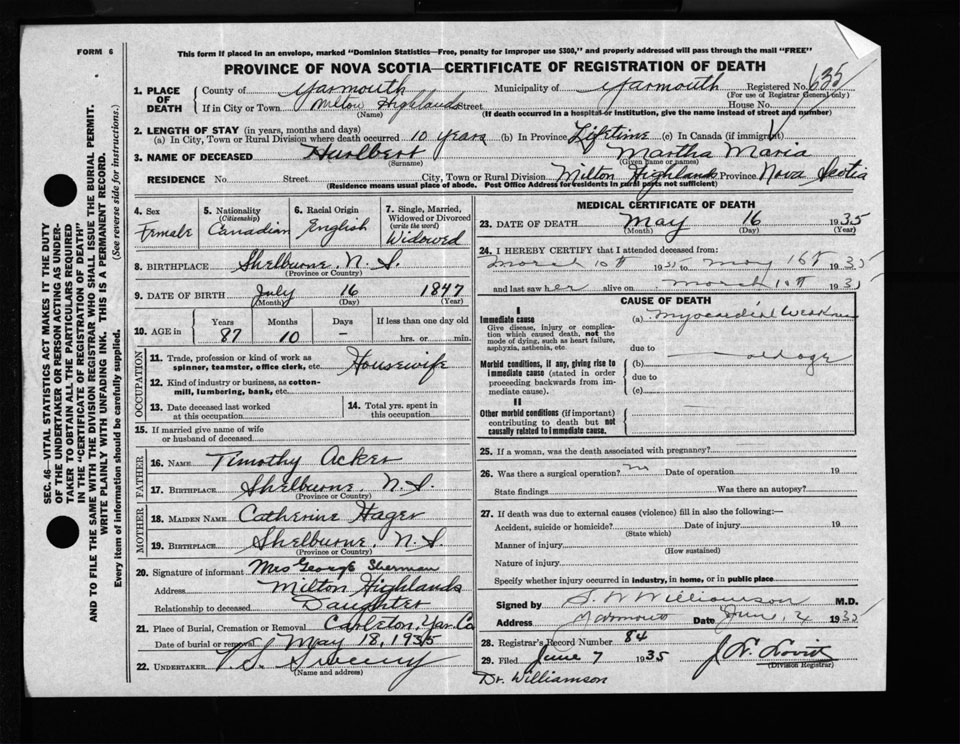 FORM 6
This form if placed in an envelope, marked "Dominion Statistics—Free, penalty for improper use $300," and properly addressed will pass through the mail "FREE"
PROVINCE OF NOVA SCOTIA—CERTIFICATE OF REGISTRATION OF DEATH
1. PLACE OF DEATH County of Yarmouth Municipality of Yarmouth Registered No. 635
(For use of Registrar General only)
If in City or Town Milton Highlands Street House No.
(Name) (If death occurred in a hospital or institution, give the name instead of street and number)
2. LENGTH OF STAY (in years, months and days)
(a) In City, Town or Rural Division where death occurred 10 years (b) In Province Lifetime (c) In Canada (if immigrant)
3. NAME OF DECEASED Hurlbert Martha Maria
(Surname) (Given name or names)
RESIDENCE No. Street City, Town or Rural Division Milton Highlands Province Nova Scotia
(Residence means usual place of abode. Post Office Address for residents in rural parts not sufficient)
4. Sex Female
5. Nationality (Citizenship) Canadian
6. Racial Origin English
7. Single, Married, Widowed or Divorced (write the word) Widowed
8. BIRTHPLACE Shelburne, N.S.
(Province or Country)
9. DATE OF BIRTH July 16 1847
(Month) (Day) (Year)
10. AGE in Years Months Days If less than one day old
87 10 — hrs. or min.
OCCUPATION
11. Trade, profession or kind of work as spinner, teamster, office clerk, etc. Housewife
12. Kind of industry or business, as cotton-mill, lumbering, bank, etc.
13. Date deceased last worked at this occupation
14. Total yrs. spent in this occupation
15. If married give name of wife or husband of deceased
FATHER
16. NAME Timothy Acker
17. BIRTHPLACE Shelburne, N.S.
(Province or Country)
MOTHER
18. MAIDEN NAME Catherine Hager
19. BIRTHPLACE Shelburne, N.S.
(Province or Country)
20. Signature of informant Mrs George Sherman
Address Milton Highlands
Relationship to deceased Daughter
21. Place of Burial, Cremation or Removal Carleton, Yar. Co
Date of burial or removal May 18, 1935
22. UNDERTAKER V.S. Sweeny
(Name and address)
MEDICAL CERTIFICATE OF DEATH
23. DATE OF DEATH May 16 1935
(Month) (Day) (Year)
24. I HEREBY CERTIFY that I attended deceased from:
March 10th 1935 to May 16th 1935
and last saw her alive on March 10th 1935
CAUSE OF DEATH
I
Immediate cause
Give disease, injury or complication which caused death, not the mode of dying, such as heart failure, asphyxia, asthenia, etc.
(a) Myocardial Weakness
due to
Morbid conditions, if any, giving rise to immediate cause (stated in order proceeding backwards from immediate cause).
(b) old age
due to
(c)
II
Other morbid conditions (if important) contributing to death but not causally related to immediate cause.
25. If a woman, was the death associated with pregnancy?
26. Was there a surgical operation? no Date of operation 19
State findings Was there an autopsy?
27. If death was due to external causes (violence) fill in also the following:—
Accident, suicide or homicide? Date of injury 19
(State which)
Manner of injury
(How sustained)
Nature of injury
Specify whether injury occurred in industry, in home, or in public place
Signed by S. W Williamson M.D.
Address Yarmouth Date June 4 1935
28. Registrar's Record Number 84
29. Filed June 7 1935
(Division Registrar)
Dr. Williamson
SEC. 46—VITAL STATISTICS ACT MAKES IT THE DUTY
OF THE UNDERTAKER OR PERSON ACTING AS UNDER-
TAKER TO OBTAIN ALL THE PARTICULARS REQUIRED
IN THE "CERTIFICATE OF REGISTRATION OF DEATH"
AND TO FILE THE SAME WITH THE DIVISION REGISTRAR WHO SHALL ISSUE THE BURIAL PERMIT.
WRITE PLAINLY WITH UNFADING INK. THIS IS A PERMANENT RECORD.
Every item of information should be carefully supplied. (See reverse side for instructions.)